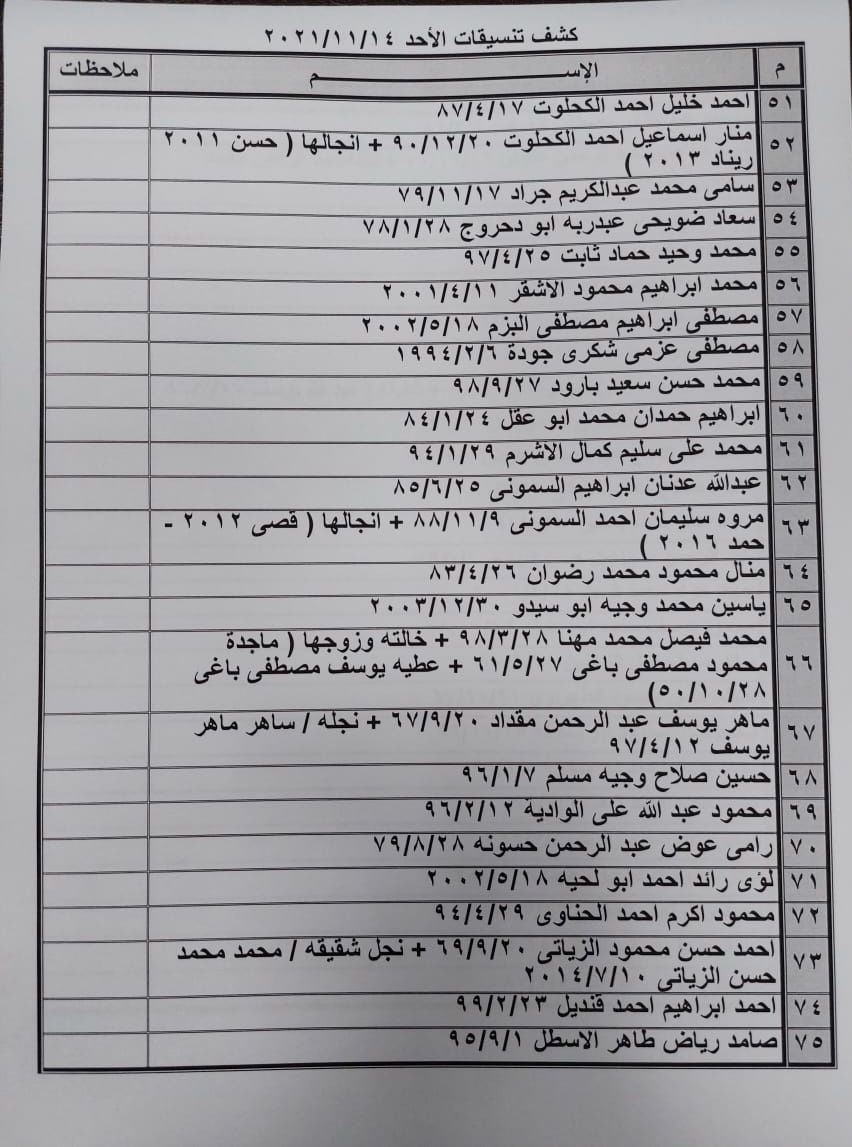 كشف تنسيقات الأحد ٢٠٢١/١١/١٤
م الإســـــــــــــــم ملاحظات
٥١ احمد خليل احمد الكحلوت ٨٧/٤/١٧
٥٢ منار اسماعيل احمد الكحلوت ٩٠/١٢/٢٠ + انجالها ( حسن ٢٠١١
ريناد ٢٠١٣ )
٥٣ سامى محمد عبدالكريم جراد ٧٩/١١/١٧
٥٤ سعاد ضويحى عبدربه ابو دحروج ٧٨/١/٢٨
٥٥ محمد وحيد حماد ثابت ٩٧/٤/٢٥
٥٦ محمد ابراهيم محمود الاشقر ٢٠٠١/٤/١١
٥٧ مصطفى ابراهيم مصطفى البزم ٢٠٠٢/٥/١٨
٥٨ مصطفى عزمى شكرى جودة ١٩٩٤/٢/٦
٥٩ محمد حسن سعيد بارود ٩٨/٩/٢٧
٦٠ ابراهيم حمدان محمد ابو عقل ٨٤/١/٢٤
٦١ محمد على سليم كمال الاشرم ٩٤/١/٢٩
٦٢ عبدالله عدنان ابراهيم السمونى ٨٥/٦/٢٥
٦٣ مروه سليمان احمد السمونى ٨٨/١١/٩ + انجالها ( قصى ٢٠١٢ -
حمد ٢٠١٦ )
٦٤ منال محمود محمد رضوان ٨٣/٤/٢٦
٦٥ ياسين محمد وجيه ابو سيدو ٢٠٠٣/١٢/٣٠
٦٦ محمد فيصل محمد مهنا ٩٨/٣/٢٨ + خالته وزوجها ( ماجدة
محمود مصطفى باغى ٦١/٥/٢٧ + عطيه يوسف مصطفى باغى
٥٠/١٠/٢٨)
٦٧ ماهر يوسف عبد الرحمن مقداد ٦٧/٩/٢٠ + نجله / ساهر ماهر
يوسف ٩٧/٤/١٢
٦٨ حسين صلاح وجيه مسلم ٩٦/١/٧
٦٩ محمود عبد الله على الوادية ٩٦/٢/١٢
٧٠ رامى عوض عبد الرحمن حسونه ٧٩/٨/٢٨
٧١ لؤى رائد احمد ابو لحيه ٢٠٠٢/٥/١٨
٧٢ محمود اكرم احمد الحناوى ٩٤/٤/٢٩
٧٣ احمد حسن محمود الزياتى ٦٩/٩/٢٠ + نجل شقيقه / محمد محمد
حسن الزياتى ٢٠١٤/٧/١٠
٧٤ احمد ابراهيم احمد قنديل ٩٩/٢/٢٣
٧٥ صامد رياض طاهر الاسطل ٩٥/٩/١